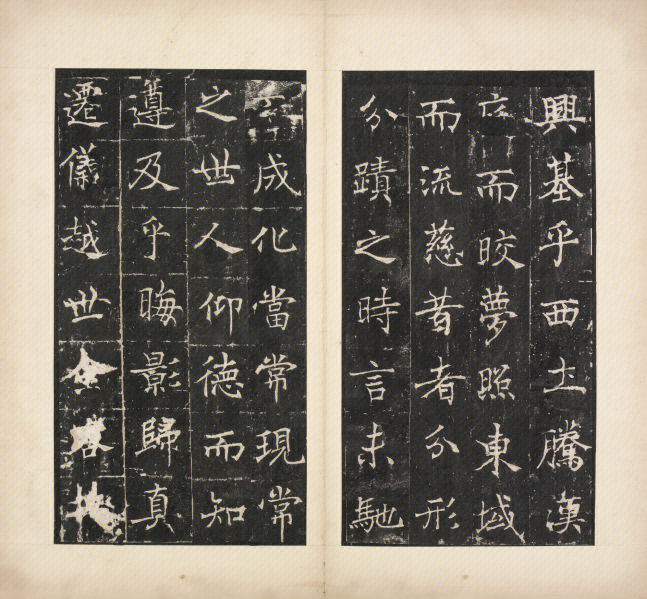 興基乎西土騰漢
庭而晈夢照東域
而流慈昔者分形
分蹟之時言未馳
成化當常現常
之世人仰德而知
遵及乎晦影歸真
遷儀越世金容掩